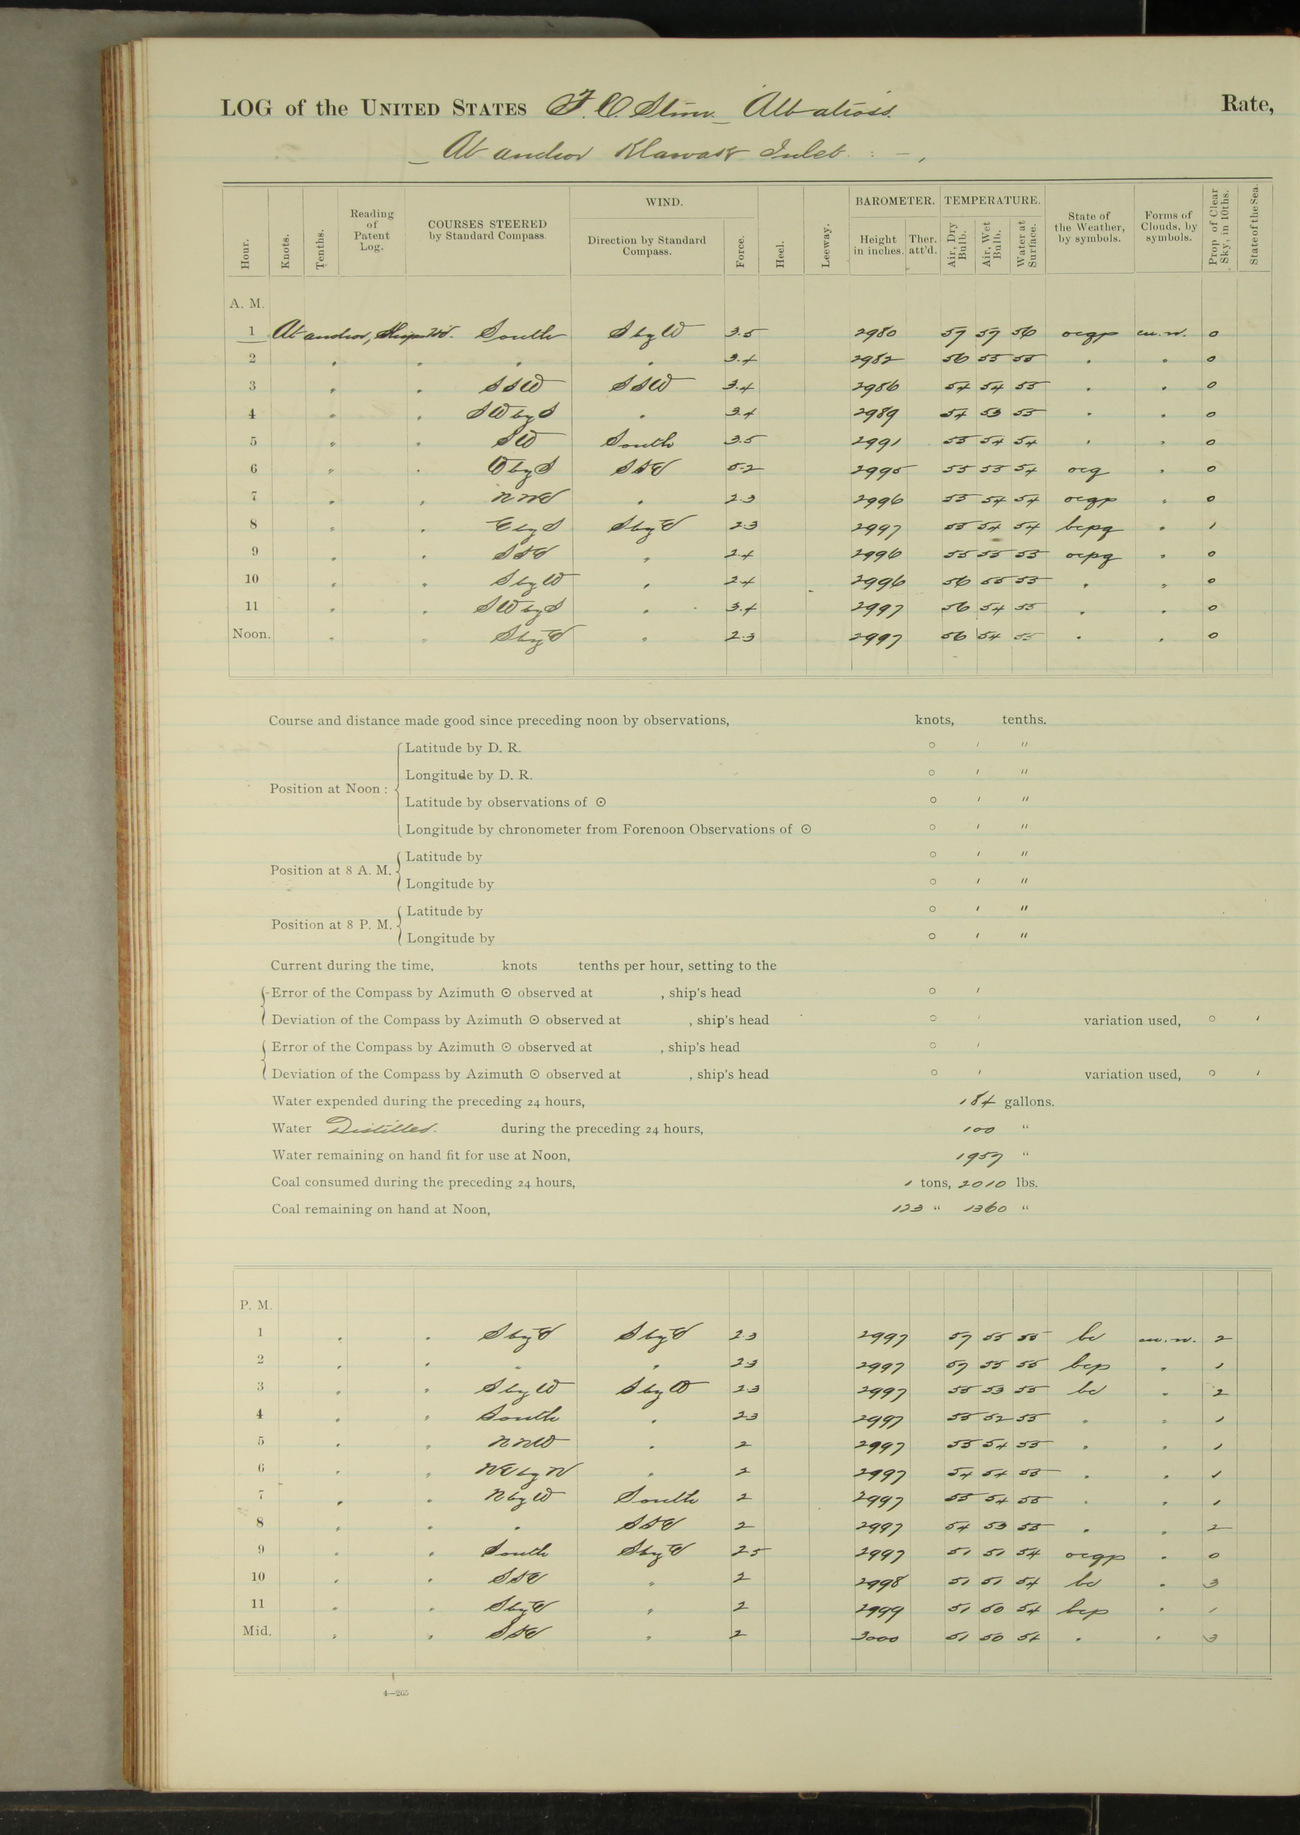 LOG of the UNITED STATES F. C. Stmr. Albatross. Rate,
At anchor Klawak Inlet
Hour. Knots. Tenths. Reading of Patent Log. COURSES STEERED by Standard Compass. WIND. Direction by Standard Compass. Force. Heel. Leeway. BAROMETER. Height in inches. Ther. att'd. TEMPERATURE. Air, Dry Bulb. Air, Wet Bulb. Water at Surface. State of the Weather, by symbols. Forms of Clouds, by symbols. Prop. of Clear Sky, in 10ths. State of the Sea.
A. M.
1 At anchor, Ship's Hd. South S by W 3.5 2980 57 57 56 ocgp cu. n. 0
2 " " " " 3.4 2982 56 55 55 " " 0
3 " " SSW SSW 3.4 2986 54 54 55 " " 0
4 " " SW by S " 3.4 2989 54 53 55 " " 0
5 " " SW South 3.5 2991 55 54 54 " " 0
6 " " W by S SSE 5-2 2995 55 55 54 ocg " 0
7 " " NNE " 2.3 2996 55 54 54 ocgp " 0
8 " " E by S S by E 2 3 2997 55 54 54 bcpg " 1
9 " " SSE " 2 4 2996 55 55 55 ocpg " 0
10 " " S by W " 2 4 2996 56 55 55 " " 0
11 " " SW by S " 3.4 2997 56 54 55 " " 0
Noon. " " S by E " 2 3 2997 56 54 55 " " 0
Course and distance made good since preceding noon by observations, knots, tenths.
Position at Noon: Latitude by D. R. ° ′ ″
Longitude by D. R. ° ′ ″
Latitude by observations of ⊙ ° ′ ″
Longitude by chronometer from Forenoon Observations of ⊙ ° ′ ″
Position at 8 A. M. Latitude by ° ′ ″
Longitude by ° ′ ″
Position at 8 P. M. Latitude by ° ′ ″
Longitude by ° ′ ″
Current during the time, knots tenths per hour, setting to the
Error of the Compass by Azimuth ⊙ observed at , ship's head ° ′
Deviation of the Compass by Azimuth ⊙ observed at , ship's head ° ′ variation used, ° ′
Error of the Compass by Azimuth ⊙ observed at , ship's head ° ′
Deviation of the Compass by Azimuth ⊙ observed at , ship's head ° ′ variation used, ° ′
Water expended during the preceding 24 hours, 184 gallons.
Water Distilled. during the preceding 24 hours, 100 "
Water remaining on hand fit for use at Noon, 1957 "
Coal consumed during the preceding 24 hours, 1 tons, 2010 lbs.
Coal remaining on hand at Noon, 123 " 1360 "
P. M.
1 " " S by E S by E 2 3 2997 57 55 55 bc cu. n. 2
2 " " " " 2 3 2997 57 55 55 bcp " 1
3 " " S by W S by W 2 3 2997 55 53 55 bc " 2
4 " " South " 2 3 2997 55 52 55 " " 1
5 " " NNW " 2 2997 55 54 55 " " 1
6 " " NE by N " 2 2997 54 54 55 " " 1
7 " " N by W South 2 2997 55 54 55 " " 1
8 " " " SSE 2 2997 54 53 55 " " 2
9 " " South S by E 2 5 2997 51 51 54 ocgp " 0
10 " " SSE " 2 2998 51 51 54 bc " 3
11 " " S by E " 2 2999 51 50 54 bcp " 1
Mid. " " SSE " 2 3000 51 50 54 " " 3
4—265